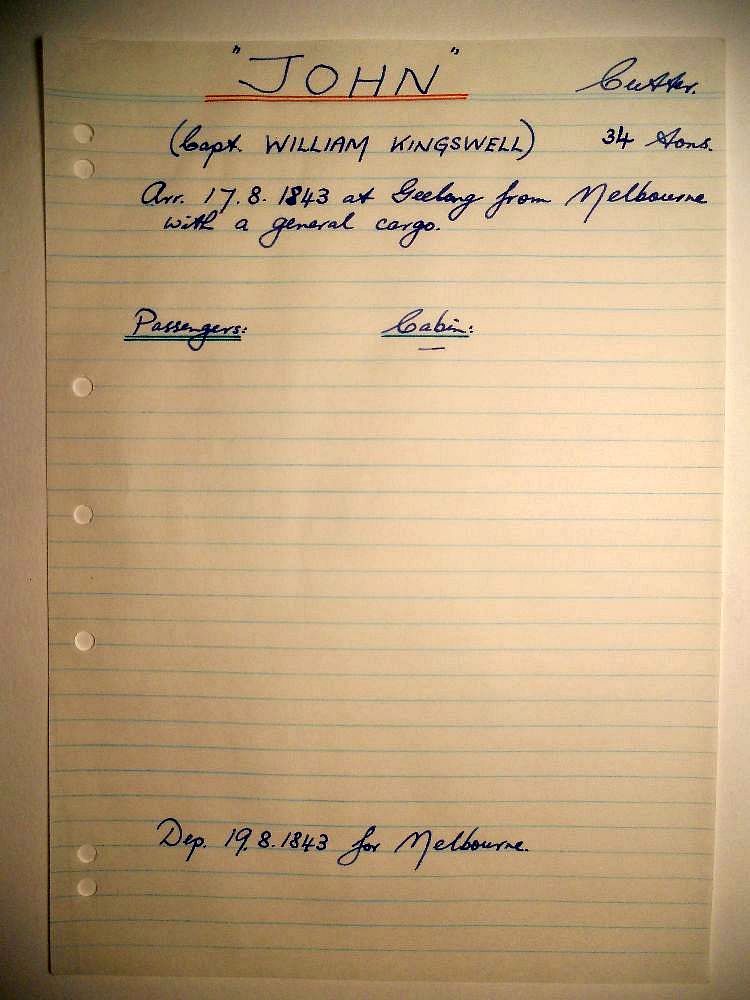 "JOHN" Cutter.
(Capt. WILLIAM KINGSWELL) 34 tons.
Arr. 17.8.1843 at Geelong from Melbourne
with a general cargo.
Passengers: Cabin:
—
Dep. 19.8.1843 for Melbourne.